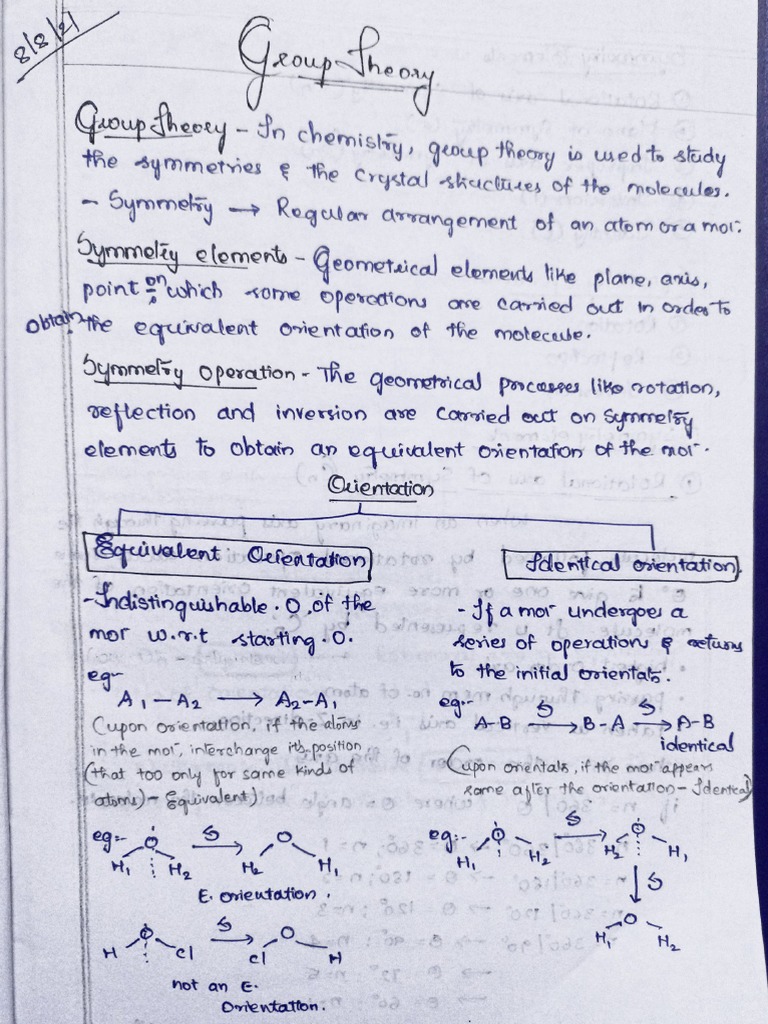 8/8/21
Group Theory
Group Theory - In chemistry, group theory is used to study
the symmetries & the crystal structures of the molecules.
- Symmetry → Regular arrangement of an atom or a mol.
Symmetry elements - Geometrical elements like plane, axis,
point on which some operations are carried out in order to
obtain the equivalent orientation of the molecule.
Symmetry operation - The geometrical processes like rotation,
reflection and inversion are carried out on symmetry
elements to obtain an equivalent orientation of the mol.
Orientation
Equivalent Orientation
- Indistinguishable. O, of the
mol w.r.t starting .O.
eg-
A1-A2 → A2-A1
(upon orientation, if the atoms
in the mol, interchange its position
(that too only for same kinds of
atoms) - Equivalent)
eg:-
O S O
H1 H2 H2 H1
E. orientation.
O S O
H Cl Cl H
not an E.
Orientation.
Identical orientation.
- If a mol undergoes a
series of operation & returns
to the initial orientatn.
eg:-
A-B S→ B-A S→ A-B
identical
(upon orientatn, if the mol appears
same after the orientation - Identical)
eg:-
O S O
H1 H2 H2 H1
S
O
H1 H2